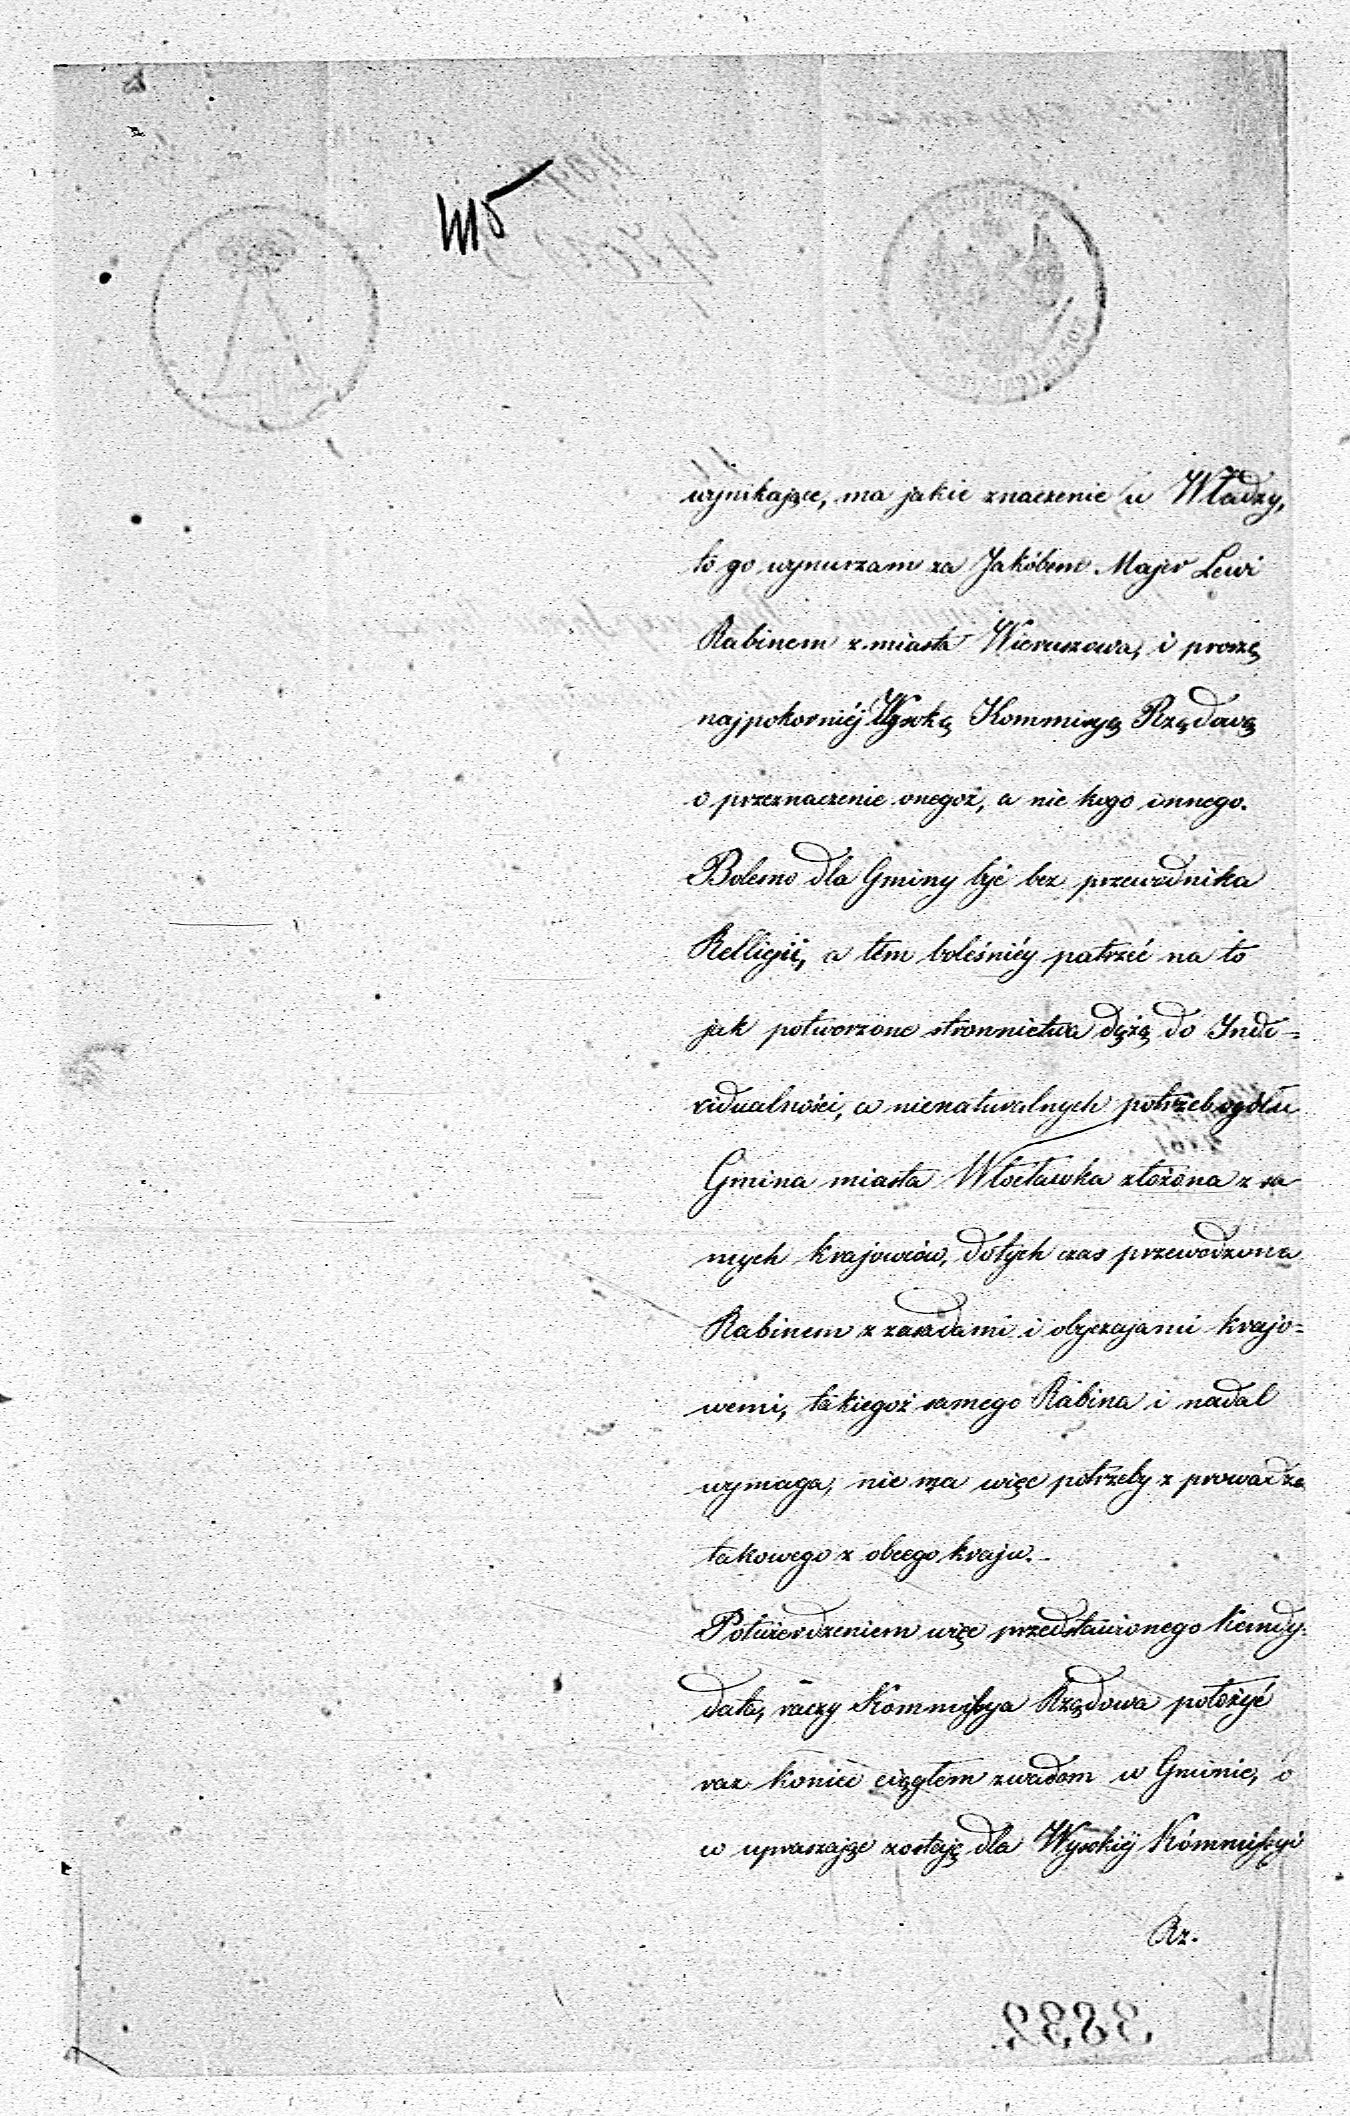 wynikające, ma jakie znaczenie u Władzy,
to go wynurzam za Jakóbem Majer Lewi
Rabinem z miasta Wieruszowa, i proszę
najpokorniéj Wysoką Kommisyą Rządową
o przeznaczenie onegoż, a nie kogo innego.
Bolesno dla Gminy być bez przewodnika
Relligii, a tém boleśniéy patrzéć na to
jak potworzone stronnictwa dążą do Indi-
vidualności, a nienaturalnych potrzeb ogółu
Gmina miasta Włocławka złożona z sa
mych krajowców, dotych czas przewodzona
Rabinem z zasadami i obyczajami krajo-
wemi, takiegoż samego Rabina i nadal
wymaga, nie ma więc potrzeby z prowadza
takowego z obcego kraju.-
Potwierdzeniem więc przedstawionego Kandy-
data, raczy Kommissya Rządowa położyć
raz koniec ciągłem zwadom w Gminie, o
co upraszając zostaję dla Wysokiéj Kommissyi
Rz.
3832